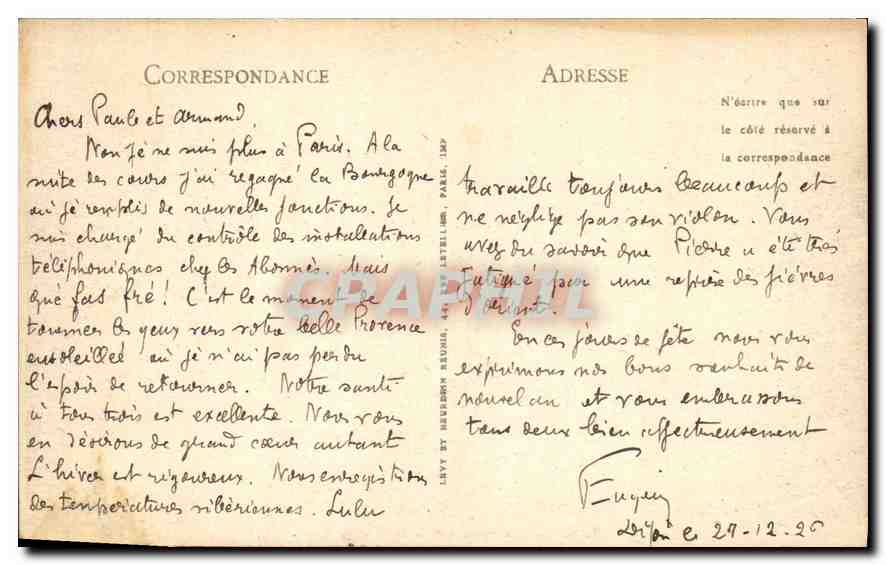 CORRESPONDANCE
Chers Paule et Armand,
Non je ne suis plus à Paris. A la
suite des cours j'ai regagné la Bourgogne
où je remplis de nouvelles fonctions. Je
suis chargé du contrôle des installations
téléphoniques chez les Abonnés. Mais
què fas fré! C'est le moment de
tourner les yeux vers votre belle Provence
ensoleillée où je n'ai pas perdu
l'espoir de retourner. Notre santé
à tous trois est excellente. Nous vous
en désirons de grand cœur autant
L'hiver est rigoureux. Nous enregistrons
des températures sibériennes. Lulu
LEVY ET NEURDEIN REUNIS, 44, RUE LETELLIER, PARIS, IMP
ADRESSE
N'écrire que sur
le côté réservé à
la correspondance
travaille toujours beaucoup et
ne néglige pas son violon. Vous
avez du savoir que Pierre a été très
fatigué par une reprise des fièvres
d'orient.
En ces jours de fête nous vous
exprimons nos bons souhaits de
nouvel an et vous embrassons
tous deux bien affectueusement
Dijon le 27-12-26
CPAPHIL